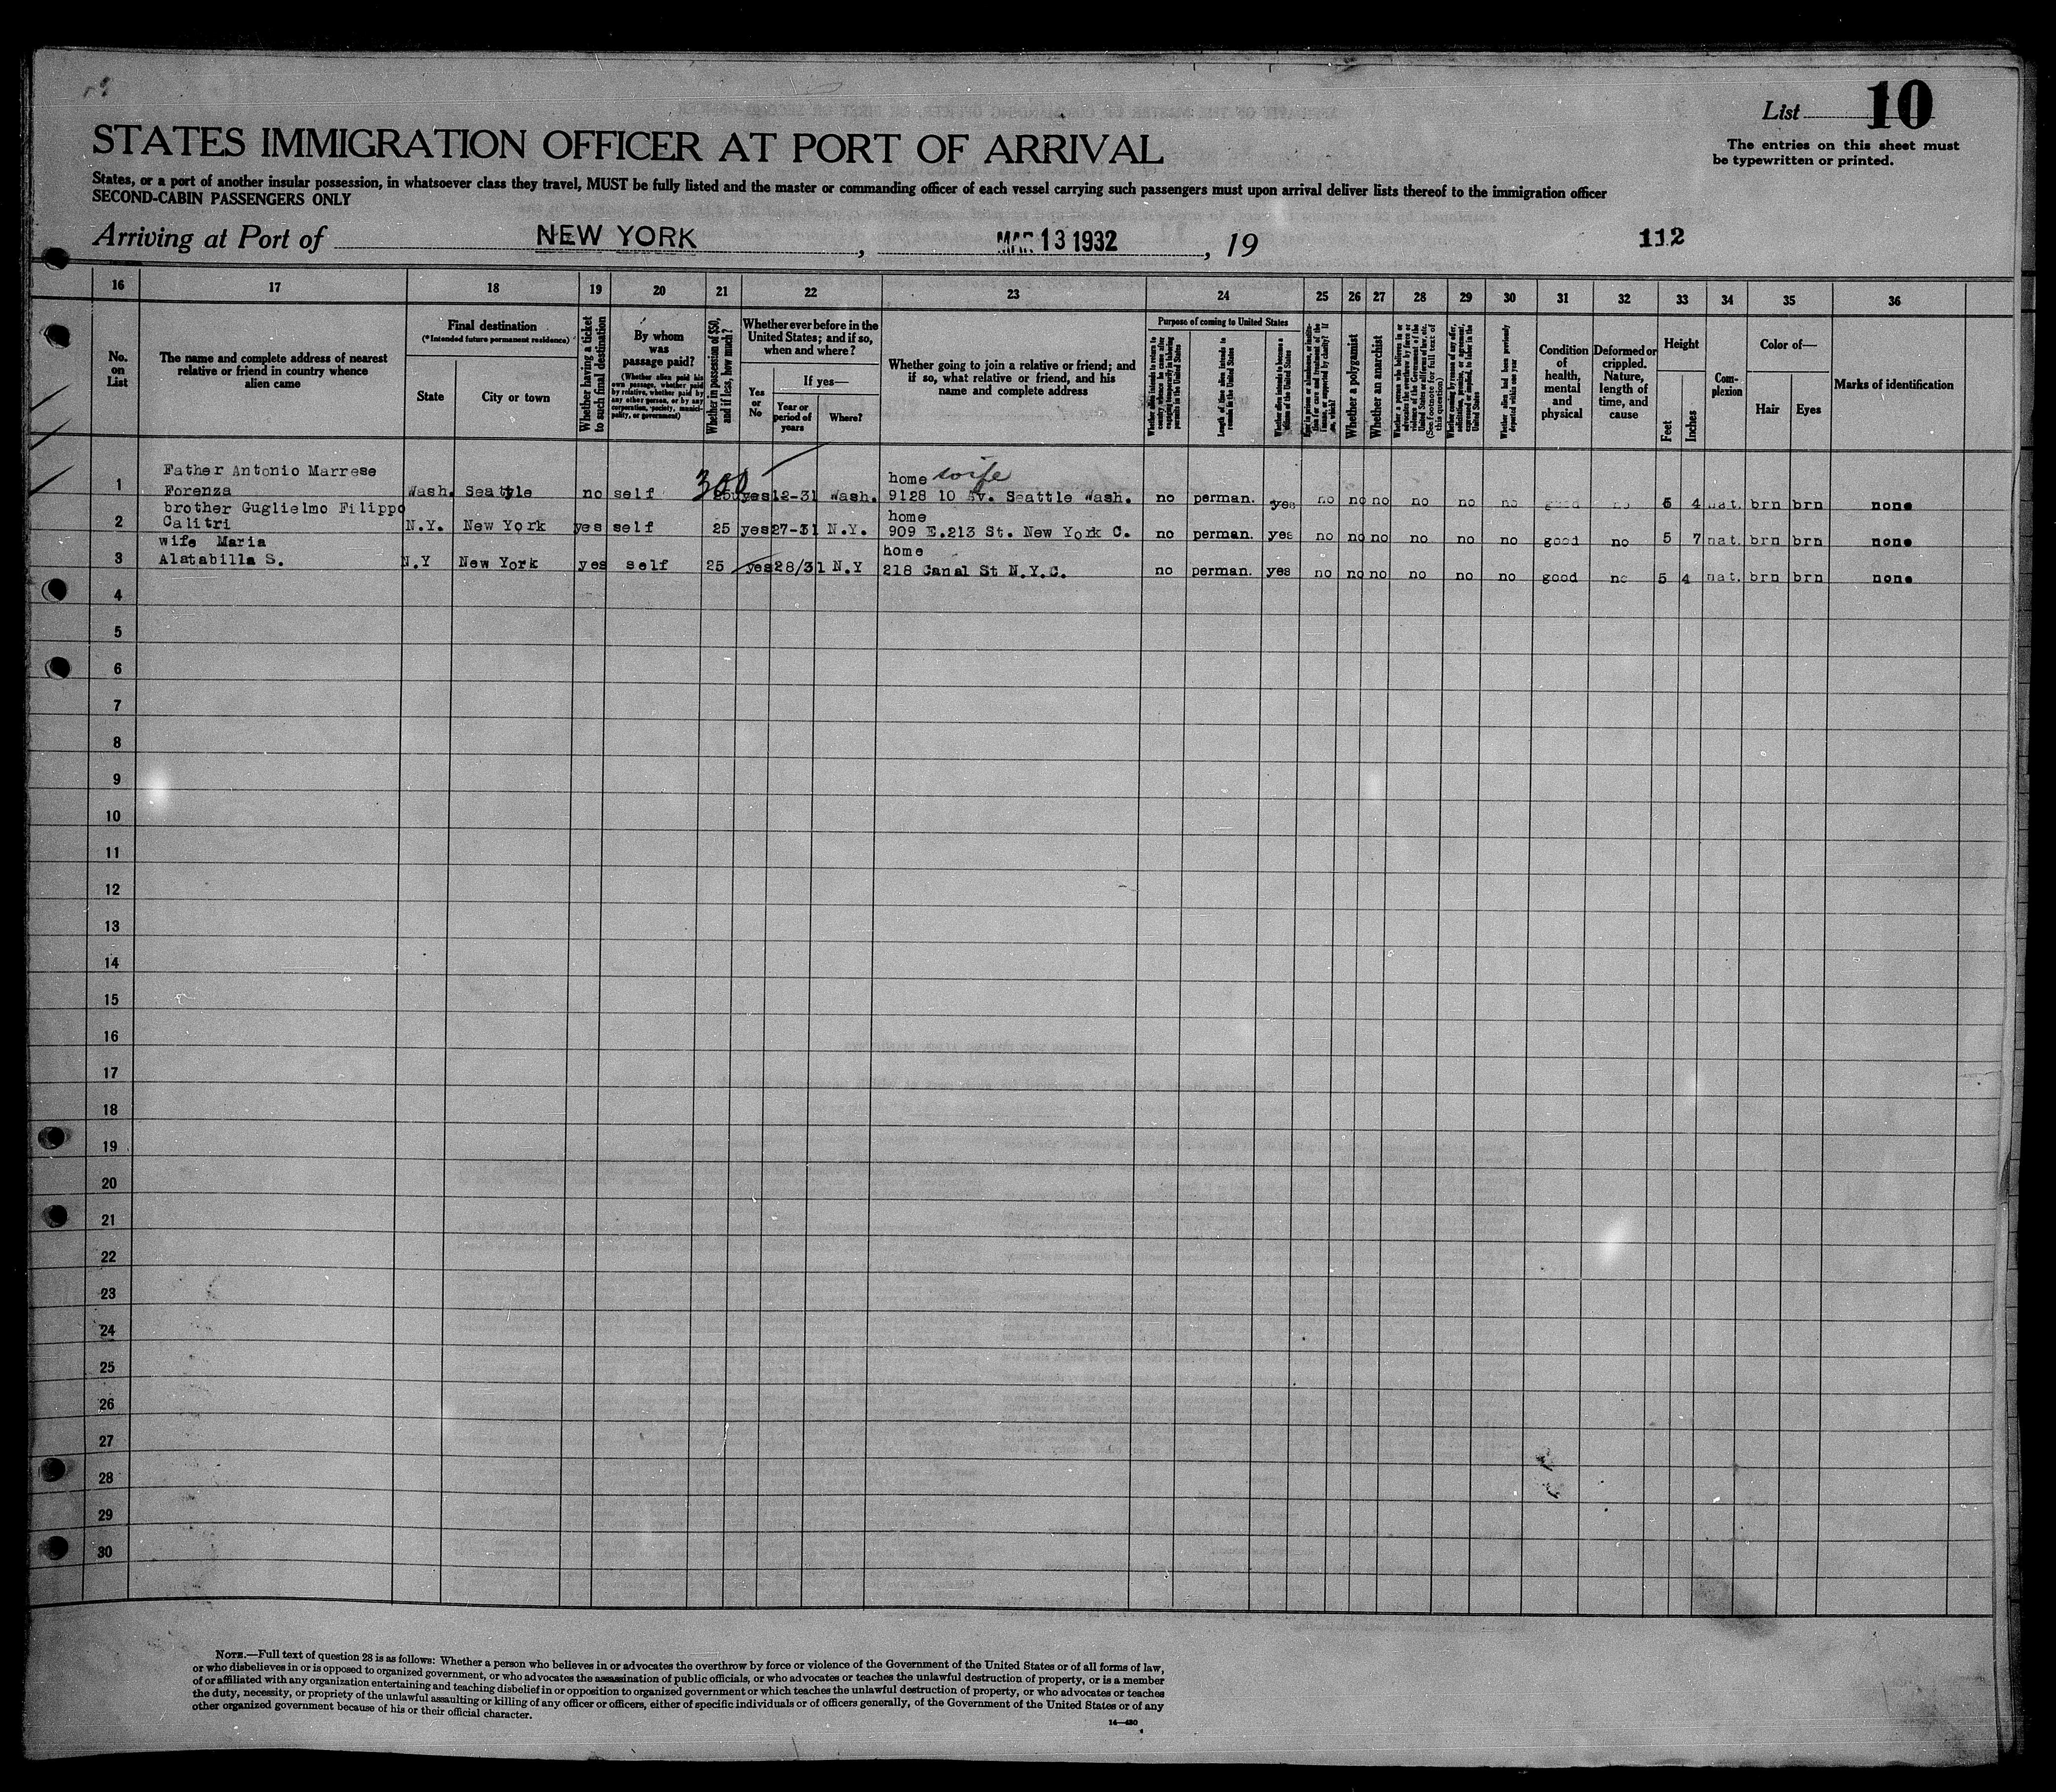 List 10
The entries on this sheet must
be typewritten or printed.
STATES IMMIGRATION OFFICER AT PORT OF ARRIVAL
States, or a port of another insular possession, in whatsoever class they travel, MUST be fully listed and the master or commanding officer of each vessel carrying such passengers must upon arrival deliver lists thereof to the immigration officer
SECOND-CABIN PASSENGERS ONLY
Arriving at Port of NEW YORK, MAR 13 1932, 19
112
16 17 18 19 20 21 22 23 24 25 26 27 28 29 30 31 32 33 34 35 36
No. on List
The name and complete address of nearest
relative or friend in country whence
alien came
Final destination
(*Intended future permanent residence)
State
City or town
Whether having a ticket
to such final destination
By whom
was
passage paid?
(Whether alien paid his
own passage, whether paid
by relative, whether paid by
any other person, or by any
corporation, society, munici-
pality, or government)
Whether in possession of $50,
and if less, how much?
Whether ever before in the
United States; and if so,
when and where?
Yes
or
No
If yes—
Year or
period of
years
Where?
Whether going to join a relative or friend; and
if so, what relative or friend, and his
name and complete address
Purpose of coming to United States
Length of time alien intends to
remain in the United States
Whether alien intends to become a
citizen of the United States
Whether a polygamist
Whether an anarchist
Whether alien had been previously
deported within one year
Condition
of
health,
mental
and
physical
Deformed or
crippled.
Nature,
length of
time, and
cause
Height
Feet
Inches
Com-
plexion
Color of—
Hair
Eyes
Marks of identification
Father Antonio Marrese
home wife
300
1 Forenza Wash. Seattle no self 25 yes 12-31 Wash. 9128 10 Av. Seattle Wash. no perman. yes no no no no no no good no 5 4 nat. brn brn none
brother Guglielmo Filippo
home
2 Calitri N.Y. New York yes self 25 yes 27-31 N.Y. 909 E.213 St. New York C. no perman. yes no no no no no no good no 5 7 nat. brn brn none
wife Maria
home
3 Alatabilla S. N.Y New York yes self 25 yes 28/31 N.Y 218 Canal St N.Y.C. no perman. yes no no no no no no good no 5 4 nat. brn brn none
4
5
6
7
8
9
10
11
12
13
14
15
16
17
18
19
20
21
22
23
24
25
26
27
28
29
30
NOTE.—Full text of question 28 is as follows: Whether a person who believes in or advocates the overthrow by force or violence of the Government of the United States or of all forms of law,
or who disbelieves in or is opposed to organized government, or who advocates the assassination of public officials, or who advocates or teaches the unlawful destruction of property, or is a member
of or affiliated with any organization entertaining and teaching disbelief in or opposition to organized government or which teaches the unlawful destruction of property, or who advocates or teaches
the duty, necessity, or propriety of the unlawful assaulting or killing of any officer or officers, either of specific individuals or of officers generally, of the Government of the United States or of any
other organized government because of his or their official character.
14—430